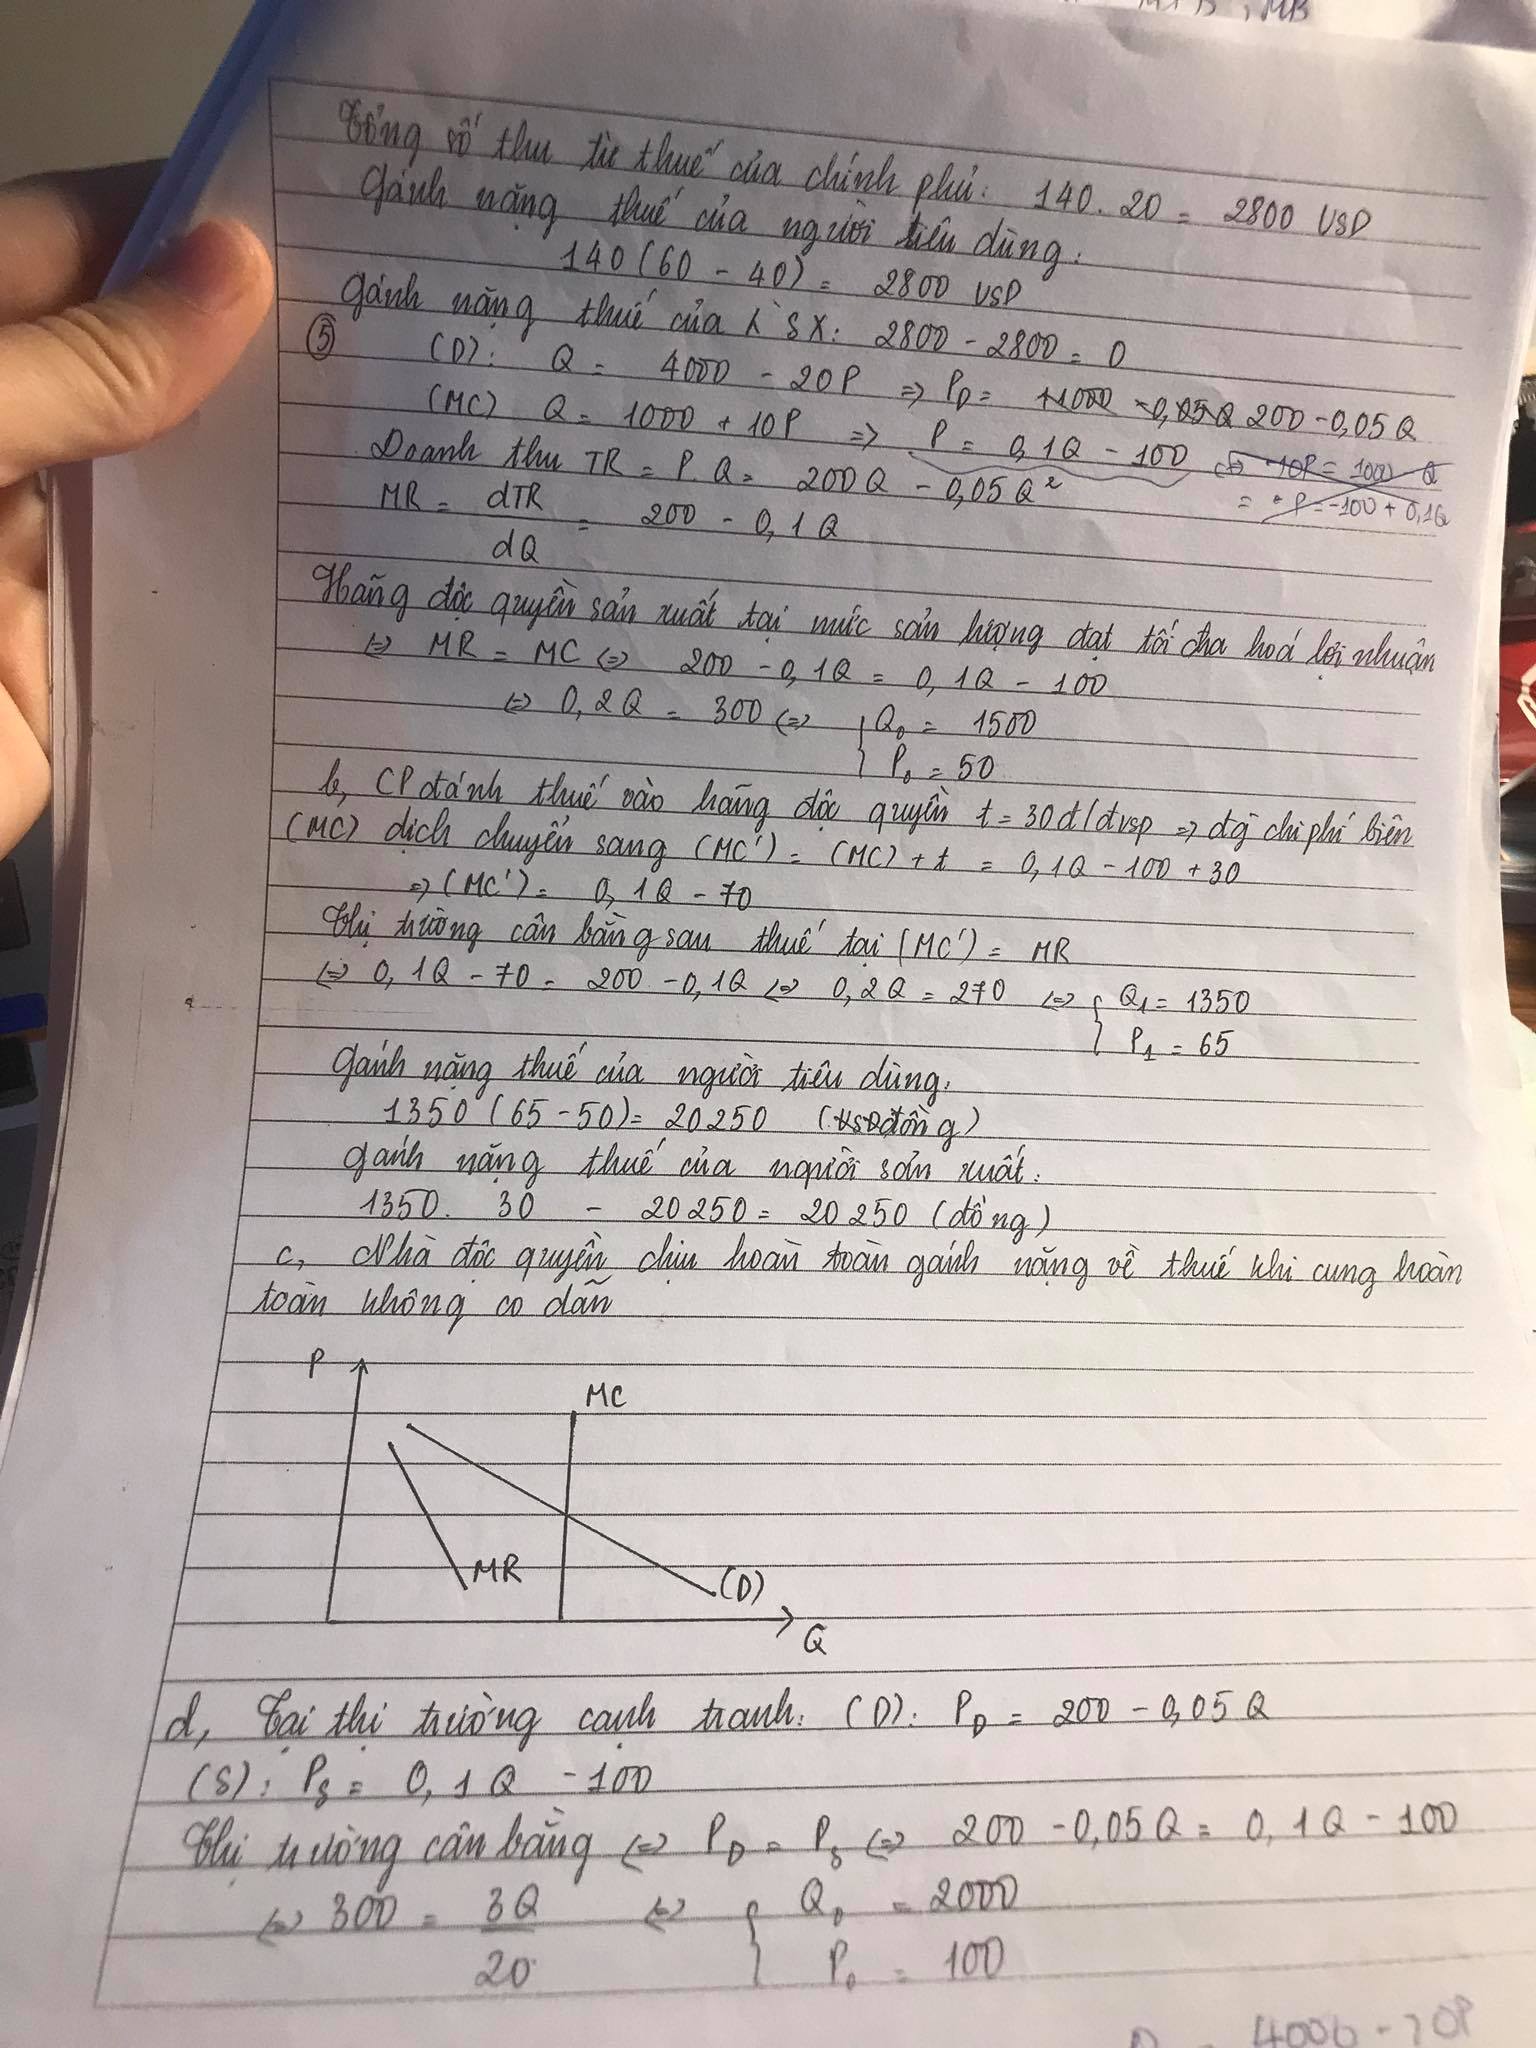 MB
Tổng số thu từ thuế của chính phủ: 140.20 = 2800 USD
Gánh nặng thuế của người tiêu dùng:
140(60 - 40) = 2800 USD
Gánh nặng thuế của SX: 2800 - 2800 = 0
⑤ (D): Q = 4000 - 20P => P_D = 200 - 0,05Q
(MC) Q = 1000 + 10P => P = 0,1Q - 100
Doanh thu TR = P.Q = 200Q - 0,05Q²
= P = -100 + 0,1Q
MR = dTR/dQ = 200 - 0,1Q
Hãng độc quyền sản xuất tại mức sản lượng đạt tối đa hoá lợi nhuận
<=> MR = MC <=> 200 - 0,1Q = 0,1Q - 100
<=> 0,2Q = 300 <=> { Q₀ = 1500
P₀ = 50
b, CP đánh thuế vào hãng độc quyền t = 30đ/đvsp => đg chi phí biên
(MC) dịch chuyển sang (MC') = (MC) + t = 0,1Q - 100 + 30
=> (MC') = 0,1Q - 70
Thị trường cân bằng sau thuế tại (MC') = MR
<=> 0,1Q - 70 = 200 - 0,1Q <=> 0,2Q = 270 <=> { Q₁ = 1350
P₁ = 65
Gánh nặng thuế của người tiêu dùng:
1350(65 - 50) = 20250 (đồng)
Gánh nặng thuế của người sản xuất:
1350. 30 - 20250 = 20250 (đồng)
c, Nhà độc quyền chịu hoàn toàn gánh nặng về thuế khi cung hoàn
toàn không co dãn
P
MC
MR
(D)
Q
d, Tại thị trường cạnh tranh: (D): P_D = 200 - 0,05Q
(S): P_S = 0,1Q - 100
Thị trường cân bằng <=> P_D = P_S <=> 200 - 0,05Q = 0,1Q - 100
<=> 300 = 3Q/20 <=> { Q₀ = 2000
P₀ = 100